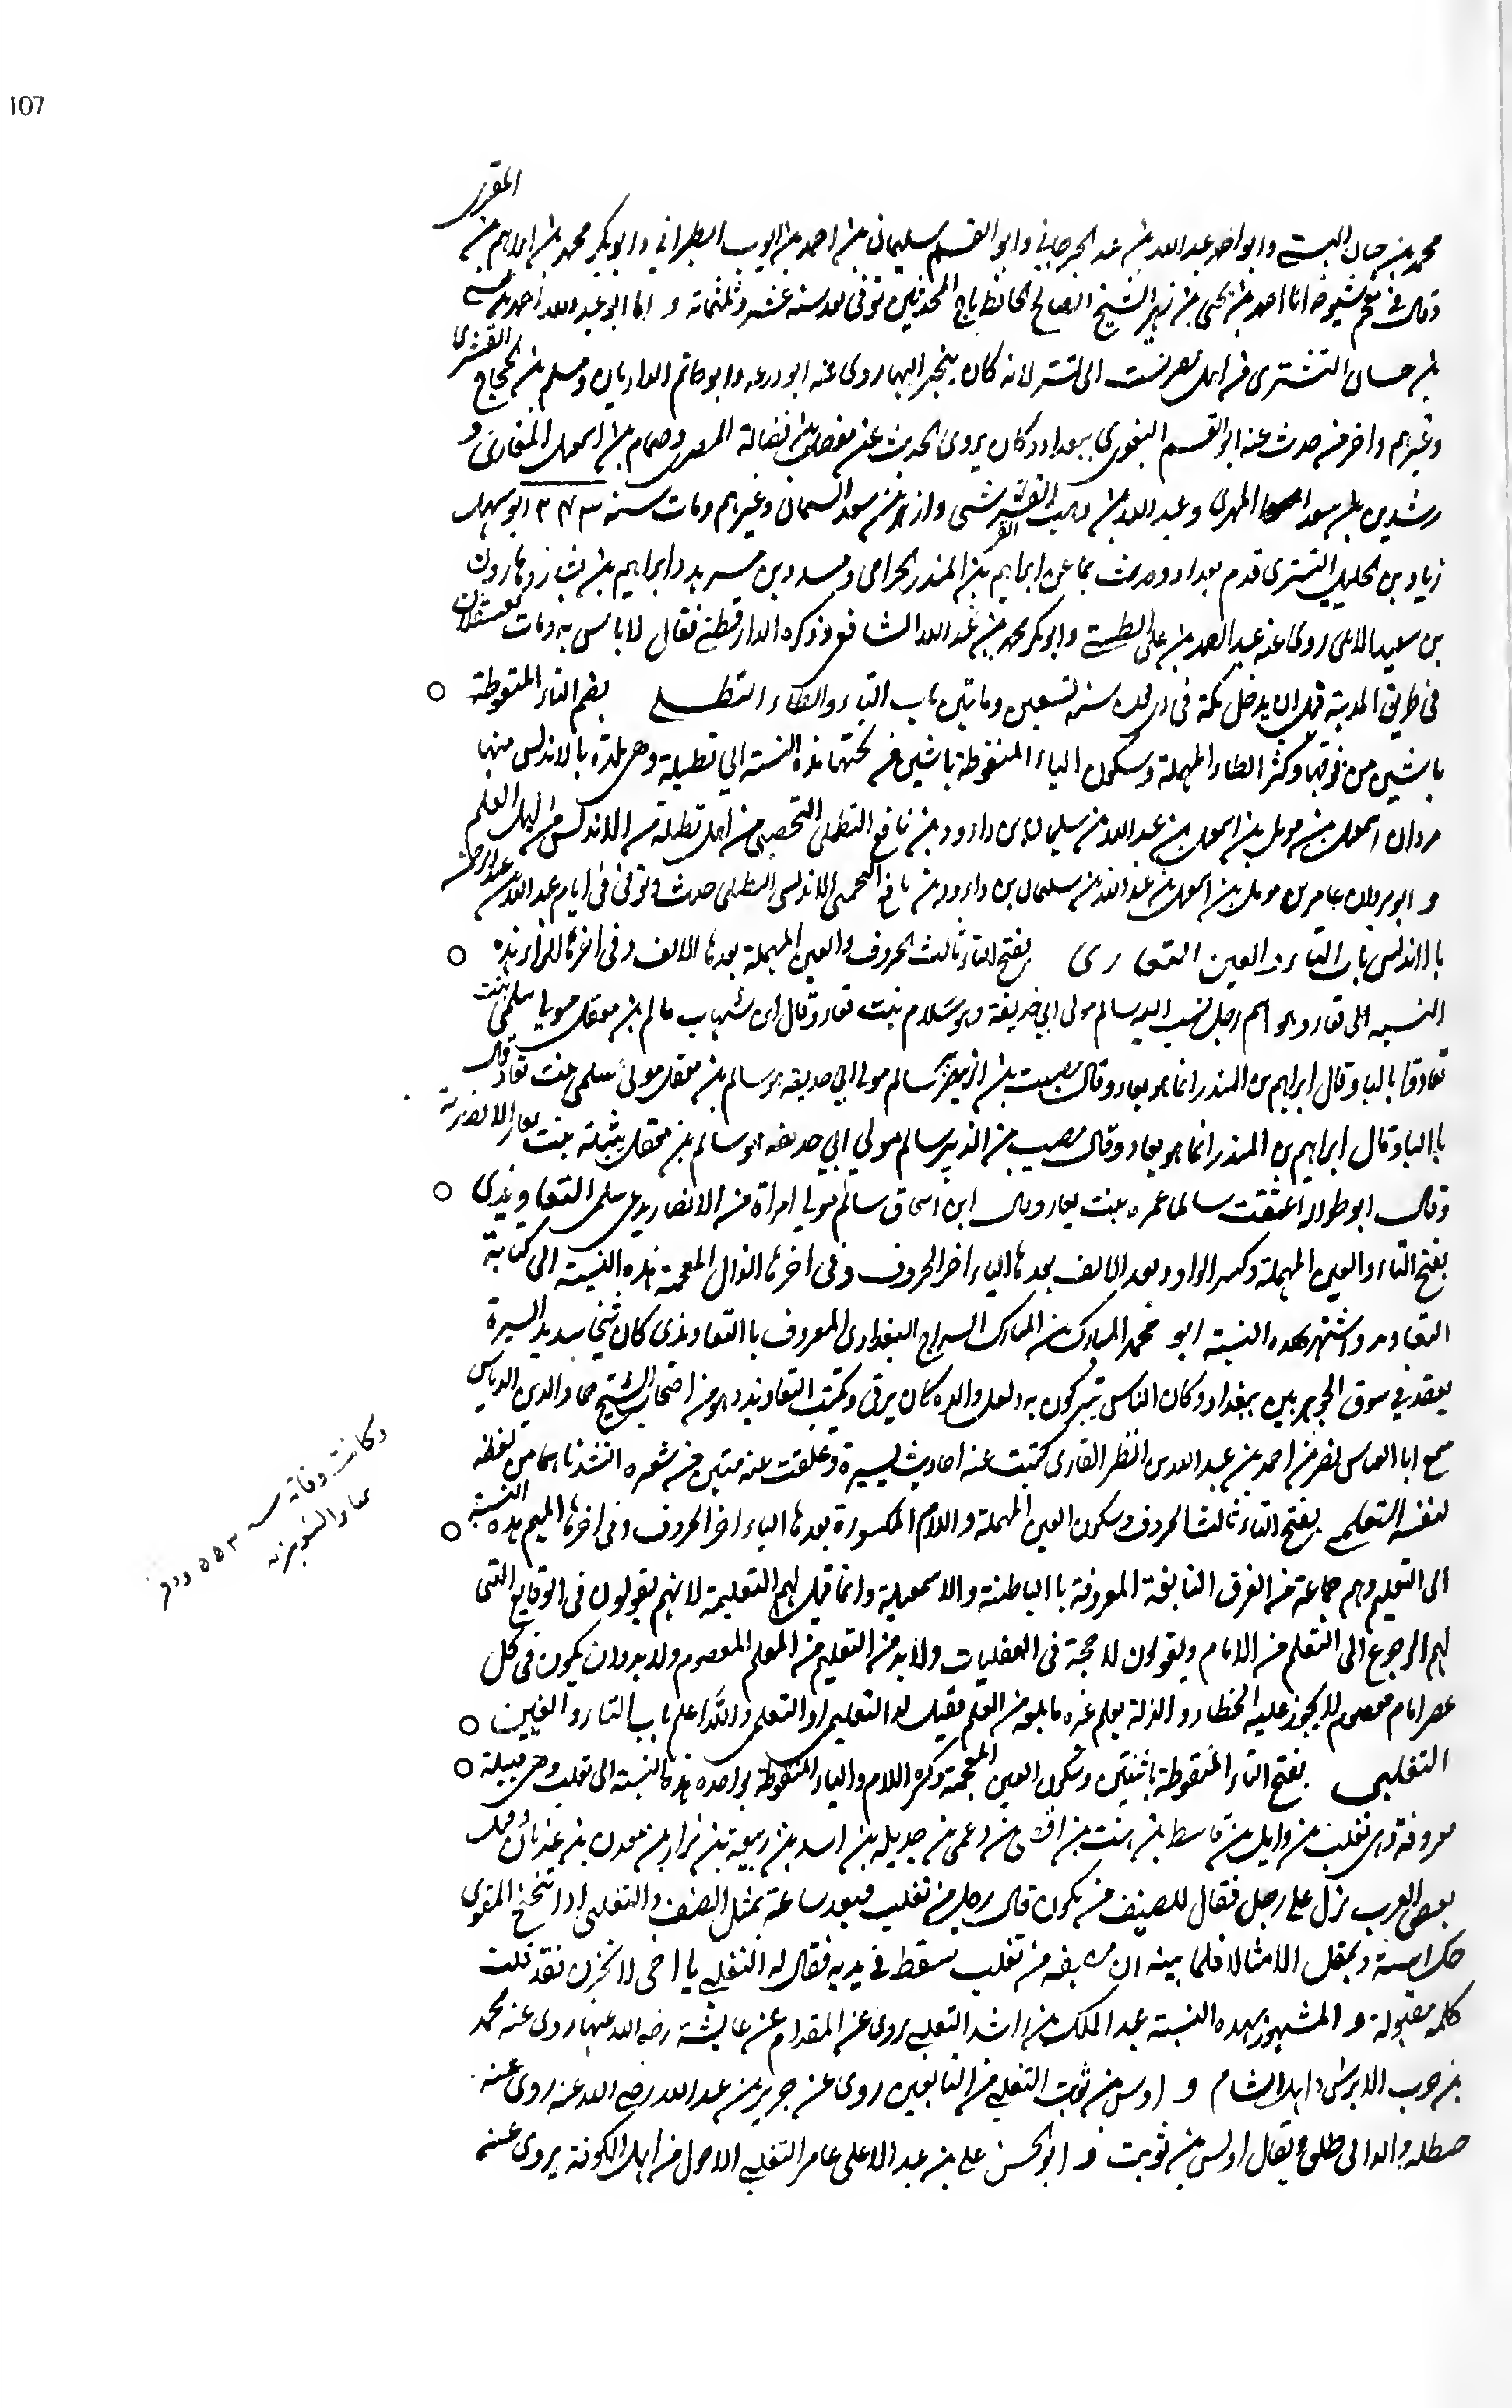 107
المقرى
محمد بن حبان البستى وابو احمد عبد الله بن عدى الجرجانى وابو القسم سليمان بن احمد بن ايوب الطبرانى وابو بكر محمد بن ابراهيم بن
وقال فى معجم شيوخه انا احمد بن يحيى بن زهير الشيخ الصالح الحافظ تاج المحدثين توفى بعد سنه عشر وثلثمائة و اما ابو عبد الله احمد بن عيسى
بن حسان التشترى من اهل مصر نسب الى تستر لانه كان يتجر اليها روى عنه ابو زرعه وابو حاتم الرازيان ومسلم بن الحجاج القشيرى
وغيرهم واخر من حدث عنه ابو القسم البغوى ببغداد وكان يروى الحديث عن مفضل بن فضالة المصرى وضمام بن اسمعيل المغافرى و
رشدين بن سعد المهرى وعبد الله بن وهب القرشى وازهر بن سعد السمان وغيرهم ومات سنه ٢٤٣ ابو سهل
زياد بن الخليل التسترى قدم بغداد وحدث بها عن ابراهيم بن المنذر الحزامى ومسدد بن مسرهد وابراهيم بن بشار وهارون
بن سعيد الايلى روى عنه عبد الصمد بن على الطستى وابو بكر محمد بن عبد الله الشافعى وذكره الدارقطنى فقال لا باس به ومات بعسقلان
فى طريق المدينة قبل ان يدخل مكة فى ذى قعده سنه تسعين وماتين باب التاء والطاء التطيلى بضم التاء المنقوطة
باثنين من فوقها وكسر الطاء المهملة وسكون الياء المنقوطة باثنين من تحتها هذه النسبه الى تطيلة وهى بلدة بالاندلس منها
مروان اسمعيل بن مومل بن اسمعيل بن عبد الله بن سليمان بن داود بن نافع التطيلى التحصبى من اهل تطيلة من الاندلس من اهل العلم
و ابو مروان عامر بن مومل بن اسمعيل بن عبد الله بن سليمان بن داود بن نافع التحصبى الاندلسى التطيلى حدث وتوفى فى ايام عبد الله بن عبد الرحمن
باالاندلس باب التاء و العين التعارى بفتح التاء ثالث الحروف والعين المهملة بعدها الالف وفى اخرها الراء هذه
النسبه الى تعار وهو اسم رجل نسب اليه سالم مولى ابى حذيفة وهو سلام بنت تعار وقال ابن شهاب سالم بن معقل مولى سلمى بنت
تعار قا بالبا وقال ابراهيم بن المنذر انما هو يعار وقال مصعب بن الزبير سالم مولى ابى حذيفه هو سالم بن معقل مولى سلمى بنت تعار قال
باالبا وقال ابراهيم بن المنذر انما هو يعار وقال مصعب بن الزبير سالم مولى ابى حذيفه هو سالم بن معقل بثينة بنت يعار الانصارية
وقال ابو طواله اعتقت سالما عمره بنت يعار وقال ابن اسحاق سالم مولى امراة من الانصار يدعى سلمى التعاويذى
بفتح التاء والعين المهملة وكسر الواو وبعد الالف بعدها الياء اخر الحروف وفى اخرها الذال المعجمة هذه النسبة الى كتابة
التعاويذ واشتهر بهذه النسبة ابو محمد المبارك بن المبارك السراج البغدادى المعروف باالتعاويذى كان شيخا سديد السيرة
يقعد فى سوق الجوهريين ببغداد وكان الناس يتبركون به ولعل والده كان يرقى ويكتب التعاويذ وهو من اصحاب الشيخ حماد الدباس
سمع ابا العباس نصر بن احمد بن عبد الله بن النظر القارى كتبت عنه احاديث يسيرة وعلقت عنه بيتين من شعره انشدناهما من لفظه
وكانت وفاته سنه ٥٥٣ ودفن
بمقابر الشونيزيه
لنفسه التعليمى بفتح التاء ثالث الحروف وسكون العين المهملة واللام المكسورة بعدها الياء اخر الحروف وفى اخرها الميم هذه النسبة
الى التعليم وهم جماعة من الفرق المعروفة باالباطنة والاسمعيلية وانما قيل لهم التعليمة لانهم يقولون فى الوقايع التى
لهم الرجوع الى التعلم من الامام ويقولون لا حجة فى العقليات ولابد من التعليم من المعلم المعصوم ولا بد وان يكون فى كل
عصر امام معصوم لا يجوز عليه الخطاء و الزلة يعلم غيره ما بلغه من العلم فقيل له التعليمى او التعلمى والله اعلم باب التاء والغين
التغلبى بفتح التاء المنقوطة باثنتين وسكون الغين المعجمة وكسر اللام والباء المنقوطة بواحده هذه النسبة الى تغلب وهى قبيلة
معروفة وهى تغلب بن وايل بن قاسط بن هنب بن افصى بن دعمى بن جديله بن اسد بن ربيعة بن نزار بن معد بن عدنان وقيل
بعض العرب نزل على رجل فقال للضيف من تكون قال رجل من تغلب فبعد ساعة تمثل الضيف والتغلبى اذا تنحنح للقرى
حك استه وتمثل الامثالا فلما بينه ان مضيفه من تغلب سقط فى يديه فقال له التغلبى يا اخى لا تحزن فقد قلت
كلمة مقبولة و المشهور بهذه النسبة عبد الملك بن راشد التغلبى يروى عن المقدام عن عايشة رضى الله عنها روى عنه محمد
بن حرب الابرش اهل الشام و اوس بن ثويب التغلبى من التابعين روى عن جرير بن عبد الله رضى الله عنه روى عنه
ويقال اوس بن ثويب و ابو الحسن على بن عبد الاعلى عامر التغلبى الاحول من اهل الكوفة يروى عنه